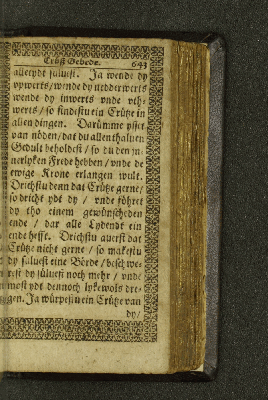 Crütz Gebede. 643
allentydt süluest. Ja wende dy
vpwerts / wende dy nedderwerts
wende dy inwerts vnde vth-
werts / so findestu ein Crütze in
allen dingen. Darümme ysset
van nöden / dat du allenthaluen
Gedult beholdest / so du den in-
nerlyken Frede hebben / vnde de
ewige Krone erlangen wult.
Drichstu denn dat Crütze gerne /
so dricht ydt dy / vnde föhret
dy tho einem gewünscheden
ende / dar alle Lydendt ein
ende hefft. Drichstu auerst dat
Crütze nicht gerne / so makestu
dy süluest eine Börde / beschwe-
rest dy süluest noch mehr / vnde
most ydt dennoch lykewols dre-
gen. Ja würpestu ein Crütze van
dy /